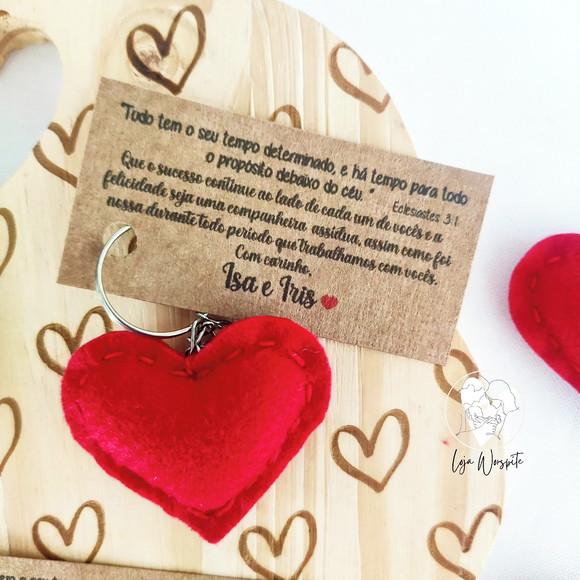 "Tudo tem o seu tempo determinado, e há tempo para todo
o propósito debaixo do céu."
Eclesiastes 3:1
Que o sucesso continue ao lado de cada um de vocês e a
felicidade seja uma companheira assídua, assim como foi
nossa durante todo período que trabalhamos com vocês.
Com carinho,
Isa e Iris
Loja Worspite